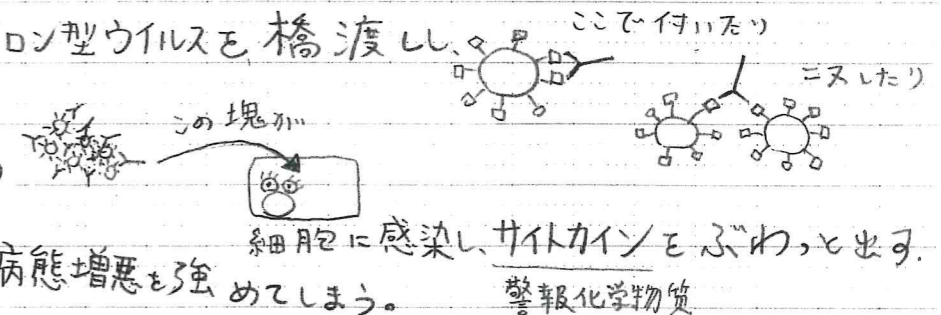 ロン型ウイルスを橋渡しし、
ここで付いたり
ニヌしたり
この塊が
細胞に感染し、サイトカインをぶわっと出す.
病態増悪を強めてしまう。
警報化学物質